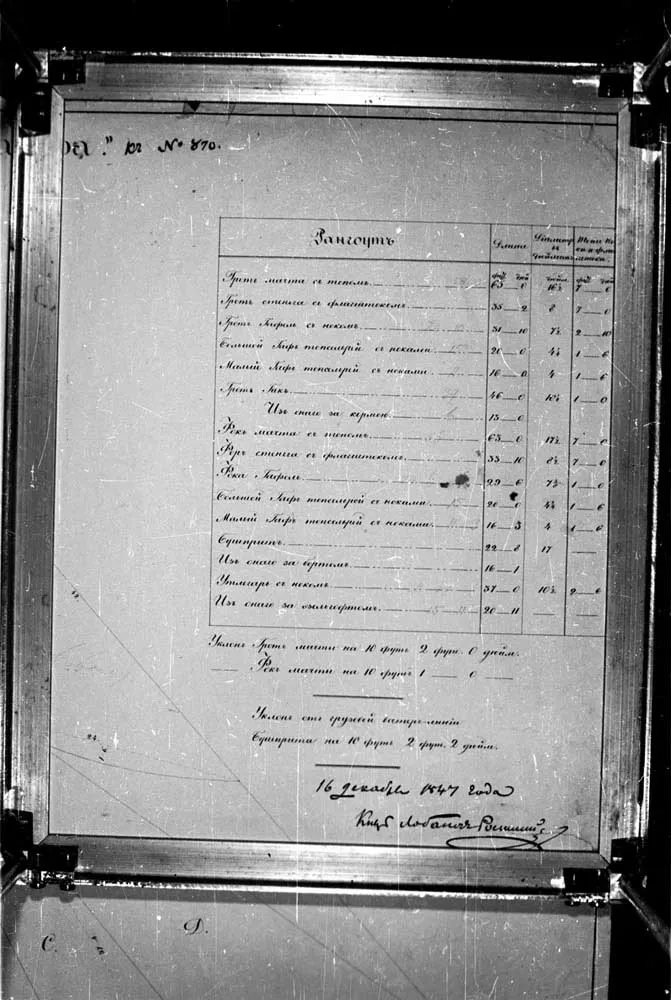 къ № 870.
Рангоутъ Длина
фут. дюй. дюйм. фут. дюй.
Гротъ мачта съ топомъ 63 0 16½ 7 6
Гротъ стеньга съ флагштокомъ 35 2 8 7 0
Гротъ Гафель съ нокомъ 31 10 7½ 2 10
Большой Гафъ топсалрей съ ноками 20 0 4¼ 1 6
Малый Гафъ топсалрей съ ноками 16 0 4 1 6
Гротъ Гикъ 46 0 10½ 1 0
Изъ онаго за кормою 13 6
Фокъ мачта съ топомъ 63 0 17½ 7 0
Форъ стеньга съ флагштокомъ 33 10 8½ 7 0
Фока Гафель 29 6 7½ 1 0
Большой Гафъ топсалрей съ ноками 20 0 4¼ 1 6
Малый Гафъ топсалрей съ ноками 16 3 4 1 6
Бушпритъ 22 8 17 —
Изъ онаго за бортомъ 16 1
Утлегарь съ нокомъ 37 0 10½ 2 6
Изъ онаго за эзельгофтомъ 20 11 — —
Уклонъ Гротъ мачты на 10 футъ 2 фут. 0 дюйм.
— Фокъ мачты на 10 футъ 1 — 0 —
Уклонъ отъ грузовой ватеръ-линіи
Бушприта на 10 футъ 2 фут. 2 дюйм.
16 декабря 1847 года
Князь Лобановъ Ростовский
24.
C.
D.